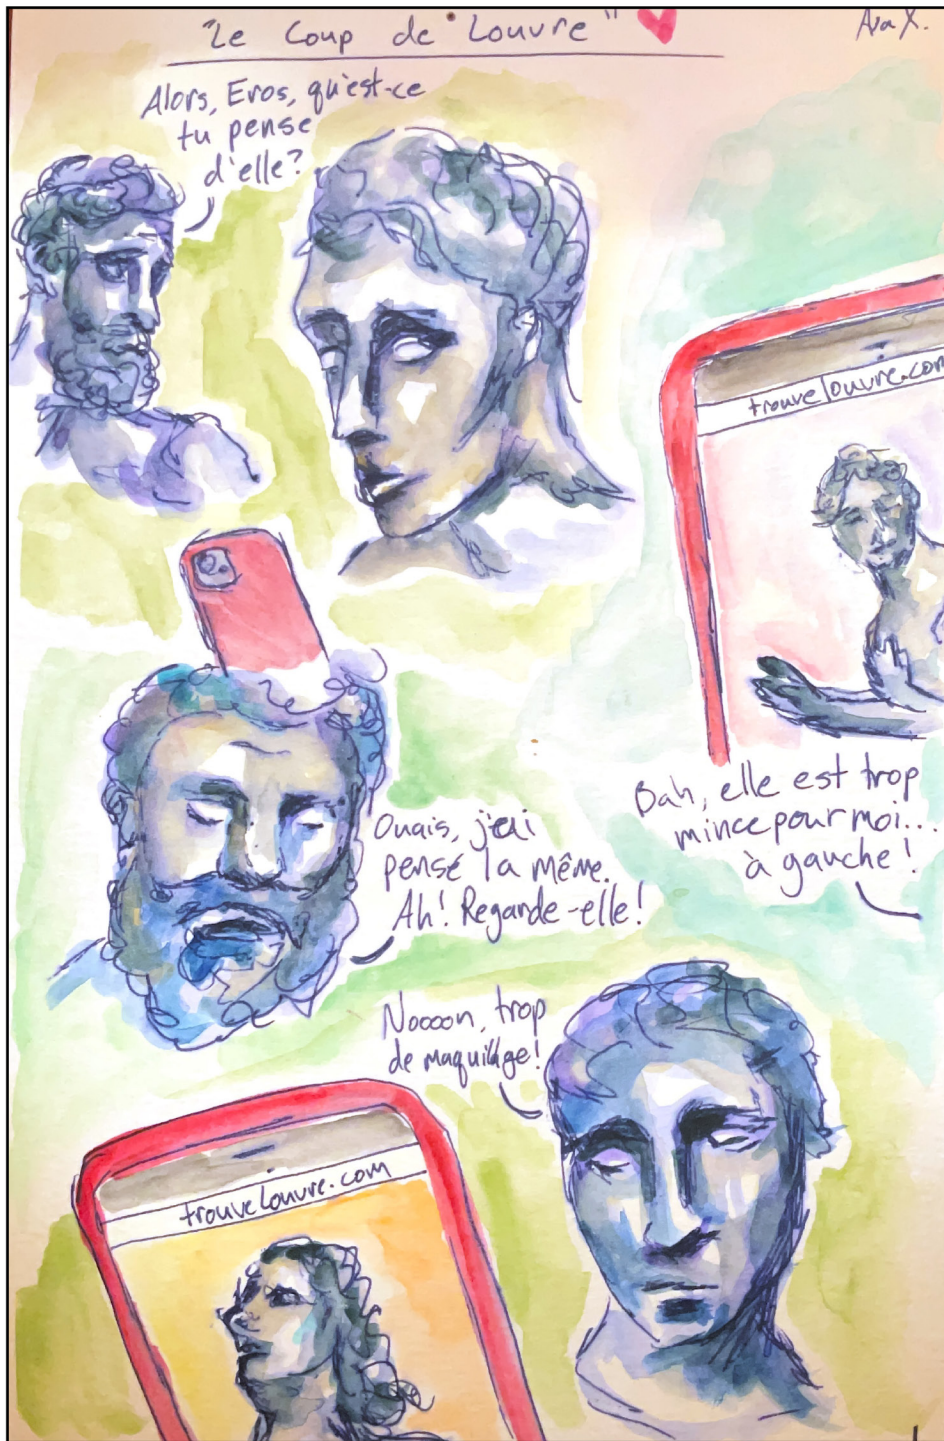 "Le Coup de Louvre"
Ava X.
Alors, Eros, qu'est-ce
tu pense
d'elle?
trouvelouvre.com
Bah, elle est trop
mince pour moi...
à gauche!
Ouais, j'ai
pensé la même.
Ah! Regarde-elle!
Nooooon, trop
de maquillage!
trouvelouvre.com